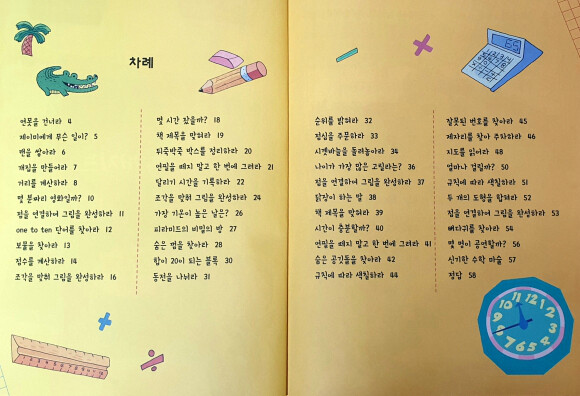 차례
연못을 건너라 4
제이미에게 무슨 일이? 5
벽을 쌓아라 6
개집을 만들어라 7
거리를 계산하라 8
몇 분짜리 영화일까? 10
점을 연결하여 그림을 완성하라 11
one to ten 단어를 찾아라 12
보물을 찾아라 13
점수를 계산하라 14
조각을 맞춰 그림을 완성하라 16
몇 시간 잤을까? 18
책 제목을 맞혀라 19
뒤죽박죽 박스를 정리하라 20
연필을 떼지 말고 한 번에 그려라 21
달리기 시간을 기록하라 22
조각을 맞춰 그림을 완성하라 24
가장 기온이 높은 날은? 26
피라미드의 비밀의 방 27
숨은 컵을 찾아라 28
합이 20이 되는 블록 30
동전을 나눠라 31
순위를 밝혀라 32
점심을 주문하라 33
시곗바늘을 돌려놓아라 34
나이가 가장 많은 고릴라는? 36
점을 연결하여 그림을 완성하라 37
닭장이 하는 말 38
책 제목을 맞혀라 39
시간이 충분할까? 40
연필을 떼지 말고 한 번에 그려라 41
숨은 공깃돌을 찾아라 42
규칙에 따라 색칠하라 44
잘못된 번호를 찾아라 45
제자리를 찾아 주차하라 46
지도를 읽어라 48
얼마나 걸릴까? 50
규칙에 따라 색칠하라 51
두 개의 도형을 합쳐라 52
점을 연결하여 그림을 완성하라 53
뼈다귀를 찾아라 54
몇 명이 공연할까? 56
신기한 수학 마술 57
정답 58